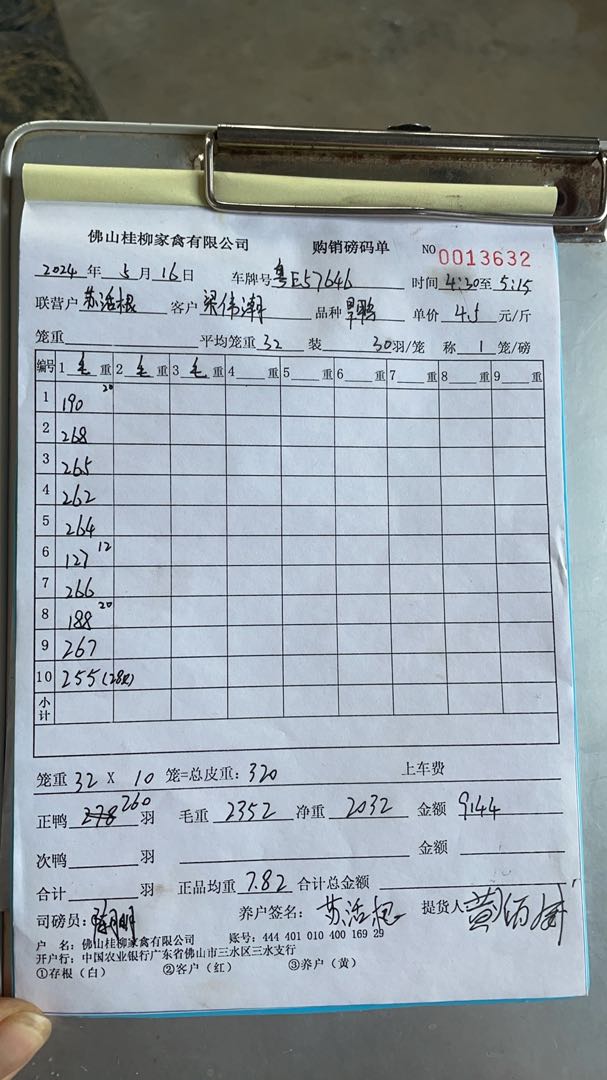 佛山桂柳家禽有限公司 购销磅码单 NO 0013632
2024 年 5 月 16 日 车牌号 粤E57646 时间 4:30 至 5:15
联营户 苏活根 客户 梁伟 品种 旱鸭 单价 4.5 元/斤
笼重 平均笼重 32 装 30 羽/笼 称 1 笼/磅
编号 1 毛 重 2 毛 重 3 毛 重 4 重 5 重 6 重 7 重 8 重 9 重
1 190 20
2 268
3 265
4 262
5 264
6 127 12
7 266
8 188 20
9 267
10 255 (28只)
小计
笼重 32 X 10 笼=总皮重: 320 上车费
正鸭 278 260 羽 毛重 2352 净重 2032 金额 9144
次鸭 羽 金额
合计 羽 正品均重 7.82 合计总金额
司磅员: 养户签名: 苏活根 提货人
户 名: 佛山桂柳家禽有限公司 账号: 444 401 010 400 169 29
开户行: 中国农业银行广东省佛山市三水区三水支行
①存根（白） ②客户（红） ③养户（黄）